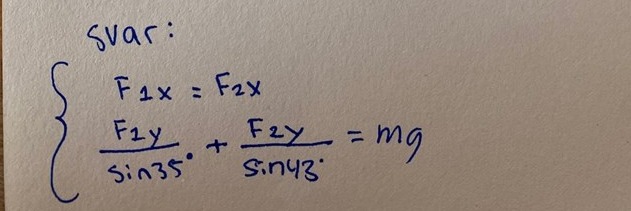 svar:
F1x = F2x
F1y/sin35° + F2y/sin43° = mg